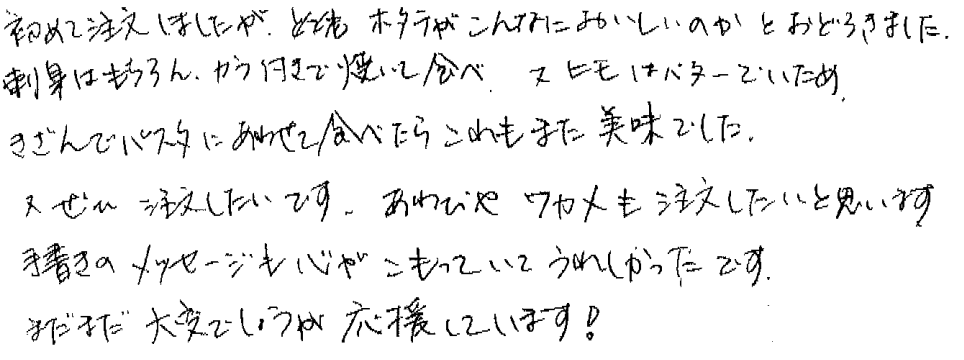 初めて注文しましたが、とても ホタテがこんなにおいしいのか とおどろきました。
刺身はもちろん、カラ付きで焼いて食べ、 又ヒモはバターでいため、
きざんでパスタにあわせて食べたらこれもまた美味でした。
又ぜひ 注文したいです。あわびや ワカメも注文したいと思います
手書きのメッセージも心がこもっていてうれしかったです。
まだまだ 大変でしょうが 応援しています!